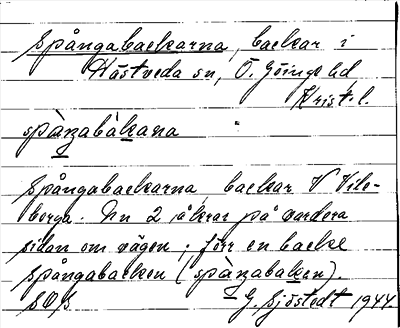 Spångabackarna, backar i
Hästveda sn, Ö. Göinge hd
Krist. l.
spàŋabàkana
Spångabackarna, backar V Vite-
berga. Nu 2 åkrar på vardera
sidan om vägen; förr en backe
Spångabacken (spàŋabakan).
SOS G. Sjöstedt 1944